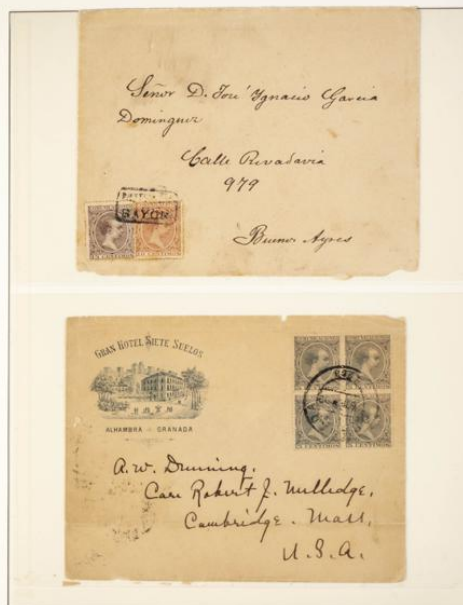 Señor D. José Ignacio Garcia
Dominguez
Calle Rivadavia
979
Buenos Ayres
BAYON
CENTIMOS
CENTIMOS
GRAN HOTEL SIETE SUELOS
ALHAMBRA GRANADA
CENTIMOS
CENTIMOS
A. W. Drunning,
Care Robert J. Milledge,
Cambridge. Mass,
U.S.A.